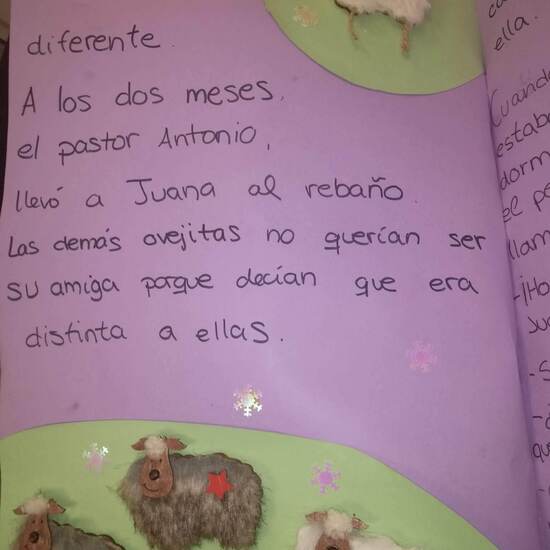 diferente.
A los dos meses,
el pastor Antonio,
llevó a Juana al rebaño.
Las demás ovejitas no querían ser
su amiga porque decían que era
distinta a ellas.
ella.